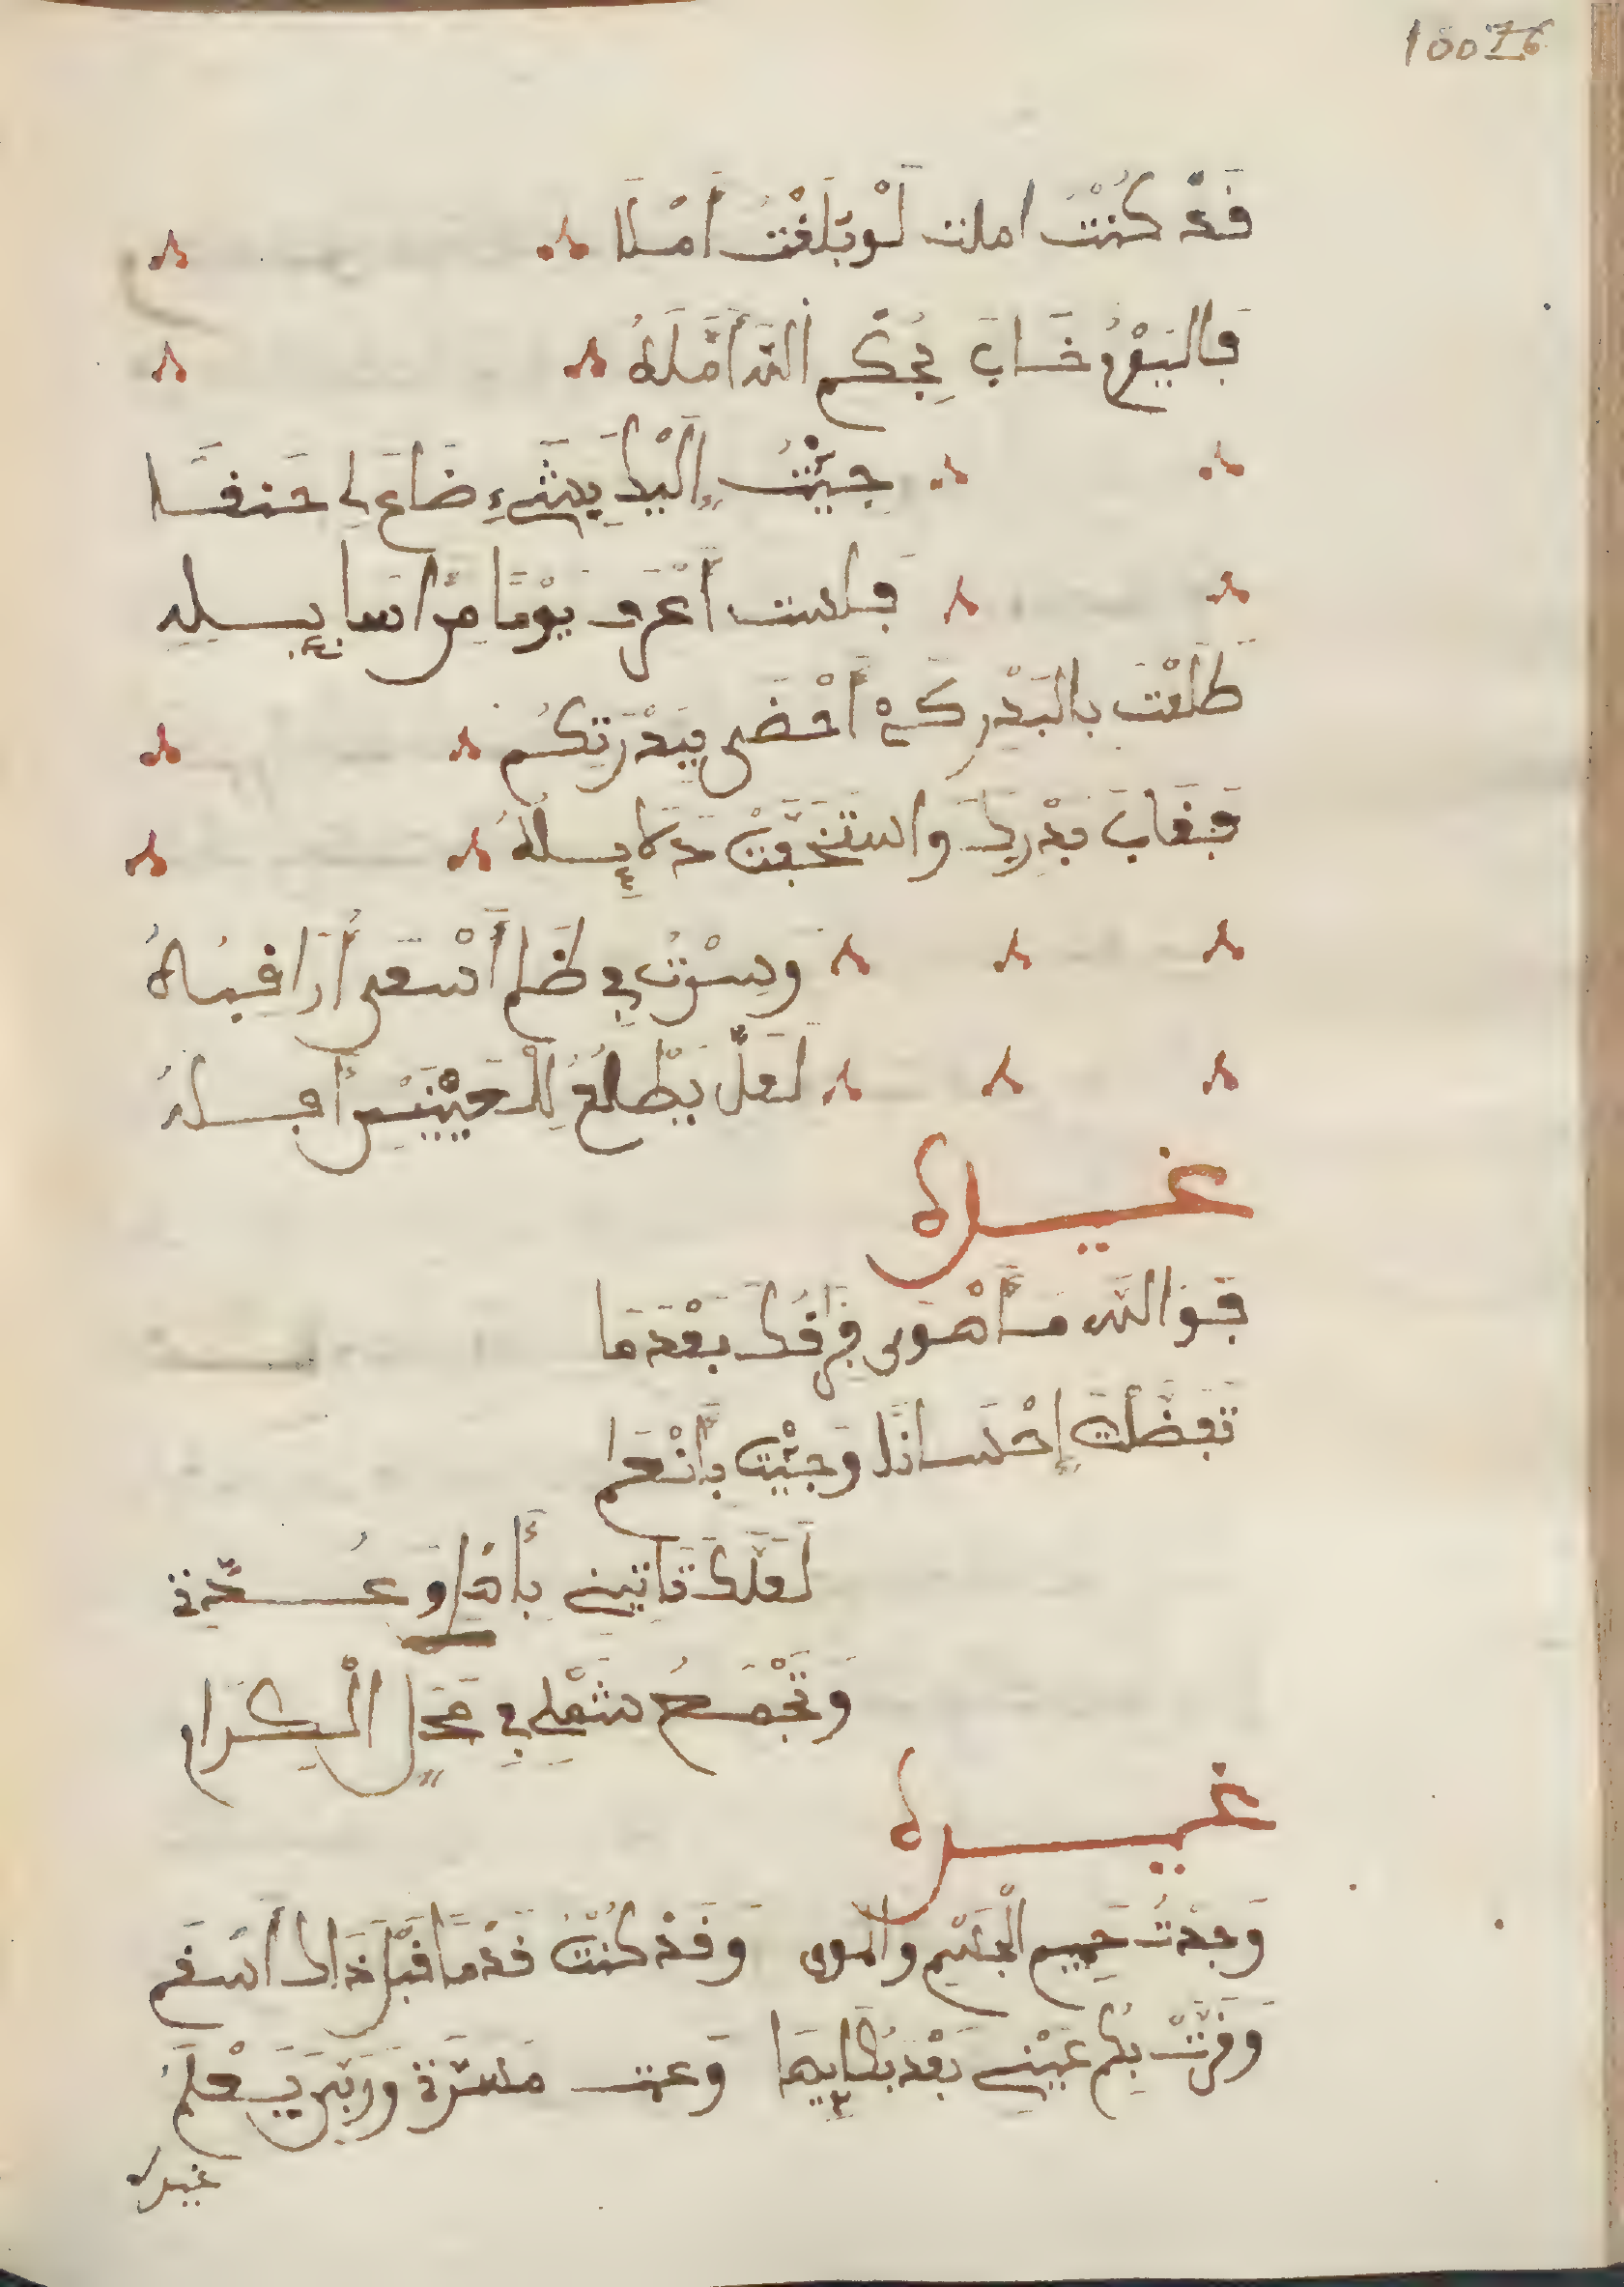 10076
قَدْ كُنْتُ املت لَوْ بَلَغْتُ أَمَلَا
فَالْيَوْمُ خَابَ بِحُكْمِ اللَّه أَمَّلَهُ
جِيْتُ إِلَيْكَ بِشَيْءٍ ضَاعَ لِي
فلست أَعْرِفُ يَوْمًا مِنْ أسايله
طَلَعْتَ بِالْبَدْرِ كَيْ أَحْضَى بِبَدْرَتِكُم
فَغَابَ بَدْرِكَ وَاسْتَخْفَتْ دَلَايِلُهُ
وَسِرْتُ فِي ظُلَمٍ أَسْعَى أُرَاقِبُهُ
لَعَلَّ يَطْلَعُ لِلْعَيْنَيْنِ أَفِلُهُ
غيره
فَوَاللَّهِ مَا أَهْوَى فِرَاقُكَ بَعْدَمَا
تَفَضَّلْتَ إِحْسَانًا وَجِيْتَ بِأَنْعُمِ
لَعَلَّكَ تَاتِينِي بِأَهْلٍ وَعُدَّةٍ
وَتَجْمَعُ شَمْلِي فِي مَحَلِّ الْكِرَامِ
غيره
وَجَدْتُ حَبِيبَ الْجِسْمِ وَالْمَوْى وَقَدْ كُنْتُ قَدْمًا قَبْلَ ذَاكَ أَسْقَمِ
وَقَرَّتْ بِكُمْ عَيْنِي بَعْدَ بُكَايِهَا وَعمت مَسَرَّةٌ وَرَبِّيَ يَعْلَمُ
غيره